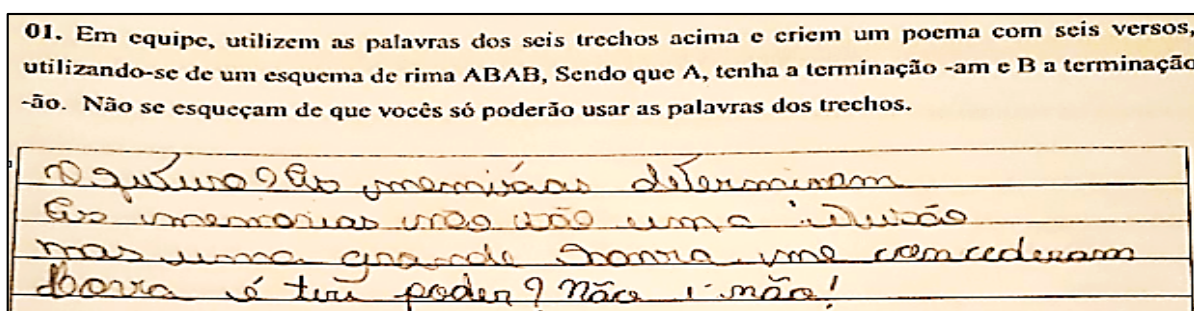 01. Em equipe, utilizem as palavras dos seis trechos acima e criem um poema com seis versos,
utilizando-se de um esquema de rima ABAB, Sendo que A, tenha a terminação -am e B a terminação
-ão. Não se esqueçam de que vocês só poderão usar as palavras dos trechos.
O futuro? As memórias determinam
As memorias não são uma ilusão
mas uma grande honra me concederam
Honra é ter poder? Não é não!